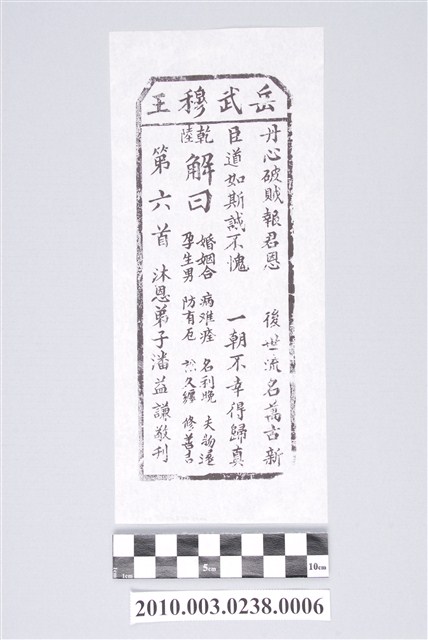 岳武穆王
丹心破賊報君恩 後世流名萬古新
臣道如斯誠不愧 一朝不幸得歸真
乾陸
解曰
婚姻合 病难痊 名利晚 失物遠
孕生男 防有厄 訟久纏 修善吉
第六首 沐恩弟子潘益謙敬刊
1cm 5cm 10cm
2010.003.0238.0006